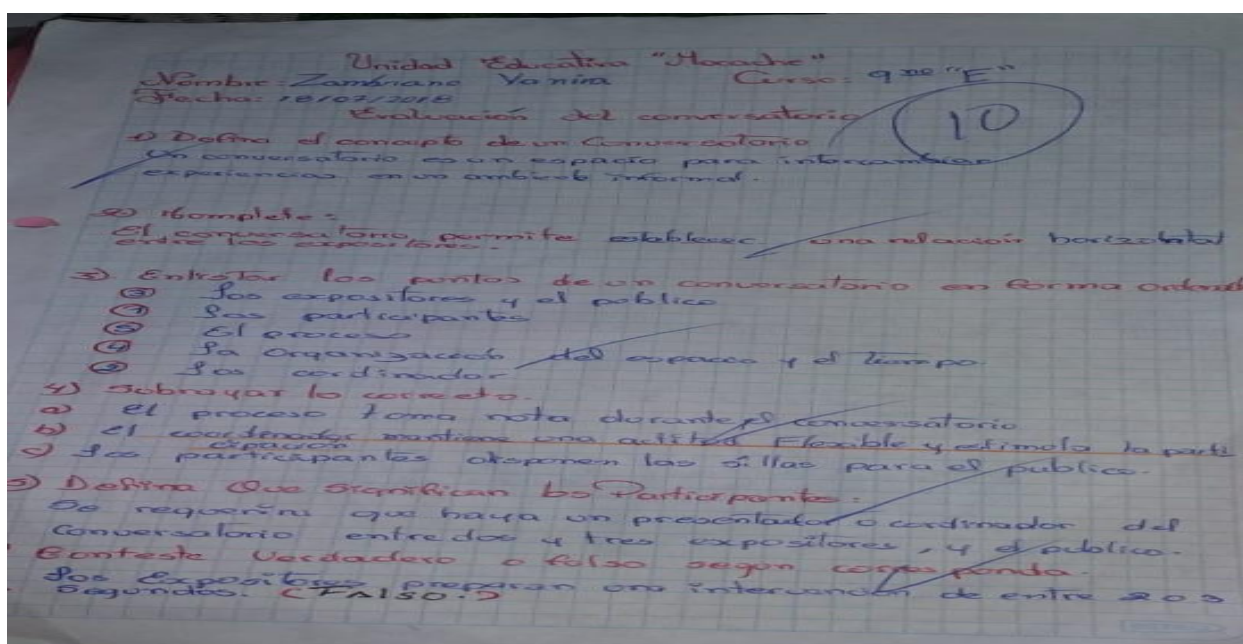 Unidad Educativa "Mocache"
Nombre: Zambrano Yanira Curso: 9no "E"
Fecha: 18/07/2018
Evaluación del conversatorio
10
1) Defina el concepto de un Conversatorio
Un conversatorio es un espacio para intercambiar
experiencias en un ambiente informal.
2) Complete:
El conversatorio permite establecer una relación horizontal
entre los expositores.
3) Enlistar los puntos de un conversatorio en forma ordenad
③ Los expositores y el publico
① Los participantes
⑤ El proceso
④ La Organizacion del espacio y el tiempo.
② Los cordinador
4) Subrayar lo correcto.
a) el proceso toma nota durante el conversatorio
b) el coordenador mantiene una actitud Flexible y estimola la parti
cipacion
c) Los participantes disponen las sillas para el publico.
5) Defina Que significan los Participantes:
Se requerira que haya un presentador o cordinador del
Conversatorio entre dos y tres expositores, y el publico.
Conteste Verdadero o falso segun corresponda.
Los Expositores preparan una intervención de entre 2 o 3
Segundos. (FALSO.)